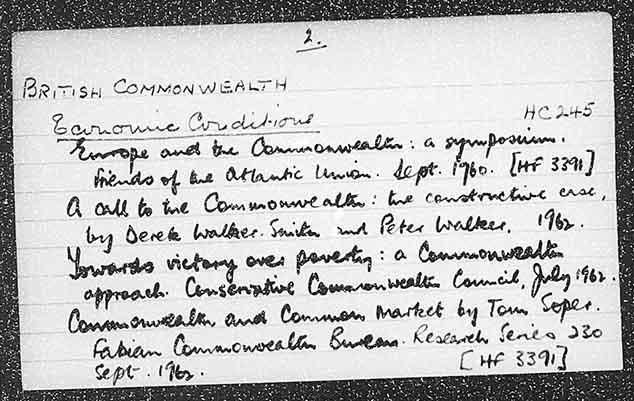 2.
BRITISH COMMONWEALTH
Economic Conditions HC 245
Europe and the Commonwealth: a symposium.
Friends of the Atlantic Union. Sept. 1960. [HF 3391]
A call to the Commonwealth: the constructive case,
by Derek Walker-Smith and Peter Walker. 1962.
Towards victory over poverty: a Commonwealth
approach. Conservative Commonwealth Council, July 1962.
Commonwealth and Common Market by Tom Soper.
Fabian Commonwealth Bureau. Research Series 230
Sept. 1962. [HF 3391]